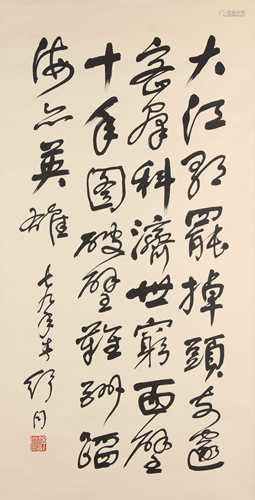 大江歌罷掉頭東邃
密羣科濟世窮面壁
十年圖破壁難酬蹈
海亦英雄
七九年 舒同